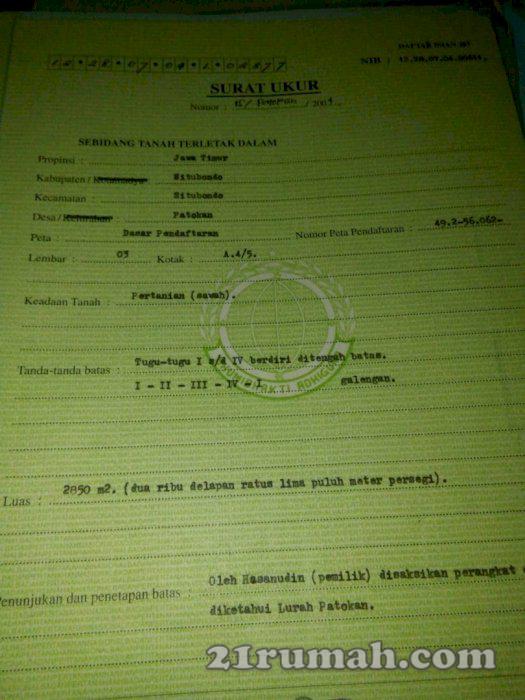 DAFTAR ISIAN 207
12.28.07.04.1.02877
NIB : 12.28.07.04.
SURAT UKUR
Nomor : 15/ Patokan /2004.
SEBIDANG TANAH TERLETAK DALAM
Propinsi : Jawa Timur
Kabupaten / Kotamadya Situbondo
Kecamatan : Situbondo
Desa / Kelurahan : Patokan
Peta : Dasar Pendaftaran Nomor Peta Pendaftaran : 49.2-56.062-
Lembar : 03 Kotak : A.4/5.
Keadaan Tanah : Pertanian (sawah).
Tanda-tanda batas : Tugu-tugu I s/d IV berdiri ditengah batas.
I - II - III - IV - I galengan.
Luas : 2850 m2. (dua ribu delapan ratus lima puluh meter persegi).
Penunjukan dan penetapan batas : Oleh Hasanudin (pemilik) disaksikan perangkat
diketahui Lurah Patokan.
21rumah.com